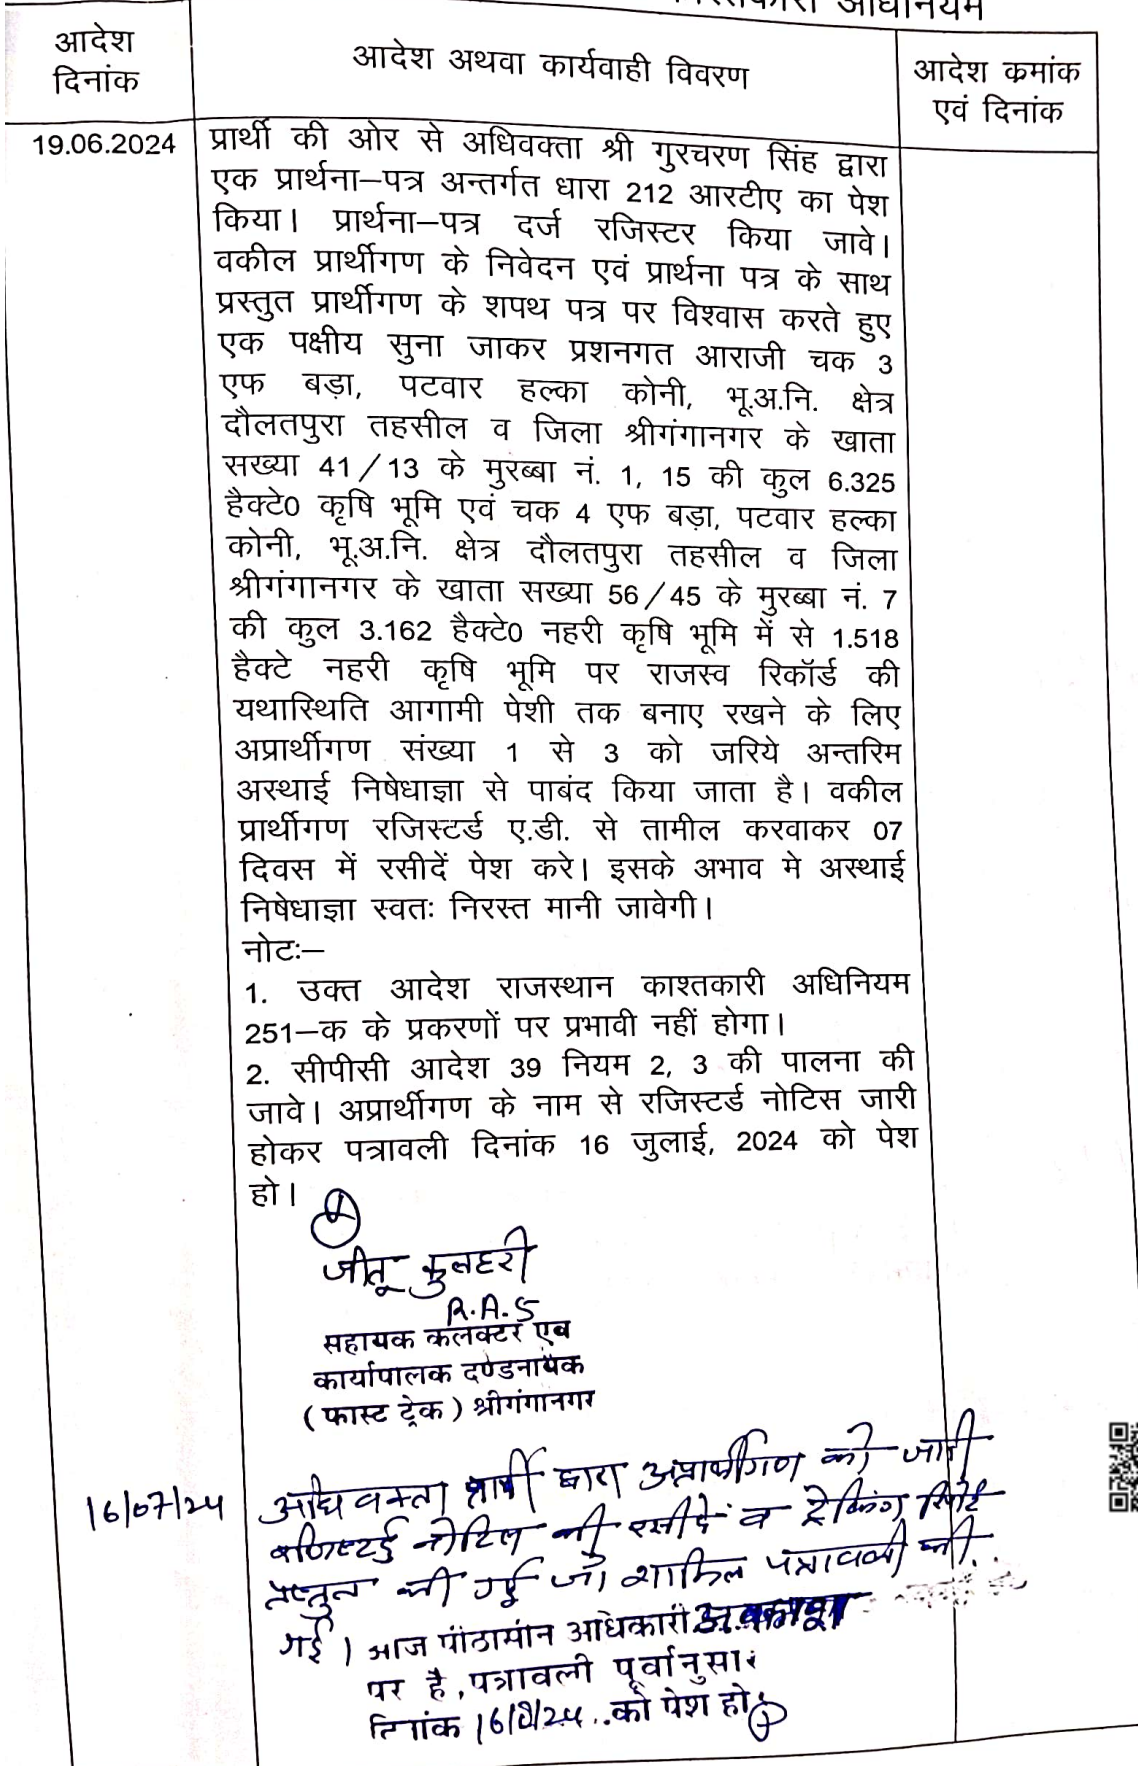 काश्तकारी अधिनियम
आदेश
दिनांक
आदेश अथवा कार्यवाही विवरण
आदेश कमांक
एवं दिनांक
19.06.2024
प्रार्थी की ओर से अधिवक्ता श्री गुरचरण सिंह द्वारा
एक प्रार्थना–पत्र अन्तर्गत धारा 212 आरटीए का पेश
किया। प्रार्थना–पत्र दर्ज रजिस्टर किया जावे।
वकील प्रार्थीगण के निवेदन एवं प्रार्थना पत्र के साथ
प्रस्तुत प्रार्थीगण के शपथ पत्र पर विश्वास करते हुए
एक पक्षीय सुना जाकर प्रशनगत आराजी चक 3
एफ बड़ा, पटवार हल्का कोनी, भू.अ.नि. क्षेत्र
दौलतपुरा तहसील व जिला श्रीगंगानगर के खाता
सख्या 41/13 के मुरब्बा नं. 1, 15 की कुल 6.325
हैक्टे0 कृषि भूमि एवं चक 4 एफ बड़ा, पटवार हल्का
कोनी, भू.अ.नि. क्षेत्र दौलतपुरा तहसील व जिला
श्रीगंगानगर के खाता सख्या 56/45 के मुरब्बा नं. 7
की कुल 3.162 हैक्टे0 नहरी कृषि भूमि में से 1.518
हैक्टे नहरी कृषि भूमि पर राजस्व रिकॉर्ड की
यथास्थिति आगामी पेशी तक बनाए रखने के लिए
अप्रार्थीगण संख्या 1 से 3 को जरिये अन्तरिम
अस्थाई निषेधाज्ञा से पाबंद किया जाता है। वकील
प्रार्थीगण रजिस्टर्ड ए.डी. से तामील करवाकर 07
दिवस में रसीदें पेश करे। इसके अभाव मे अस्थाई
निषेधाज्ञा स्वतः निरस्त मानी जावेगी।
नोटः–
1. उक्त आदेश राजस्थान काश्तकारी अधिनियम
251–क के प्रकरणों पर प्रभावी नहीं होगा।
2. सीपीसी आदेश 39 नियम 2, 3 की पालना की
जावे। अप्रार्थीगण के नाम से रजिस्टर्ड नोटिस जारी
होकर पत्रावली दिनांक 16 जुलाई, 2024 को पेश
हो।
जीतू कुलहरी
R.A.S
सहायक कलक्टर एवं
कार्यापालक दण्डनायक
(फास्ट ट्रेक) श्रीगंगानगर
16/07/24
अधिवक्ता प्रार्थी द्वारा अप्रार्थीगण को जारी
रजिस्टर्ड नोटिस की रसीदें व ट्रेकिंग रिपोर्ट
प्रस्तुत की गई जो शामिल पत्रावली की
गई। आज पीठासीन अधिकारी अवकाश
पर है, पत्रावली पूर्वानुसार
दिनांक को पेश हो